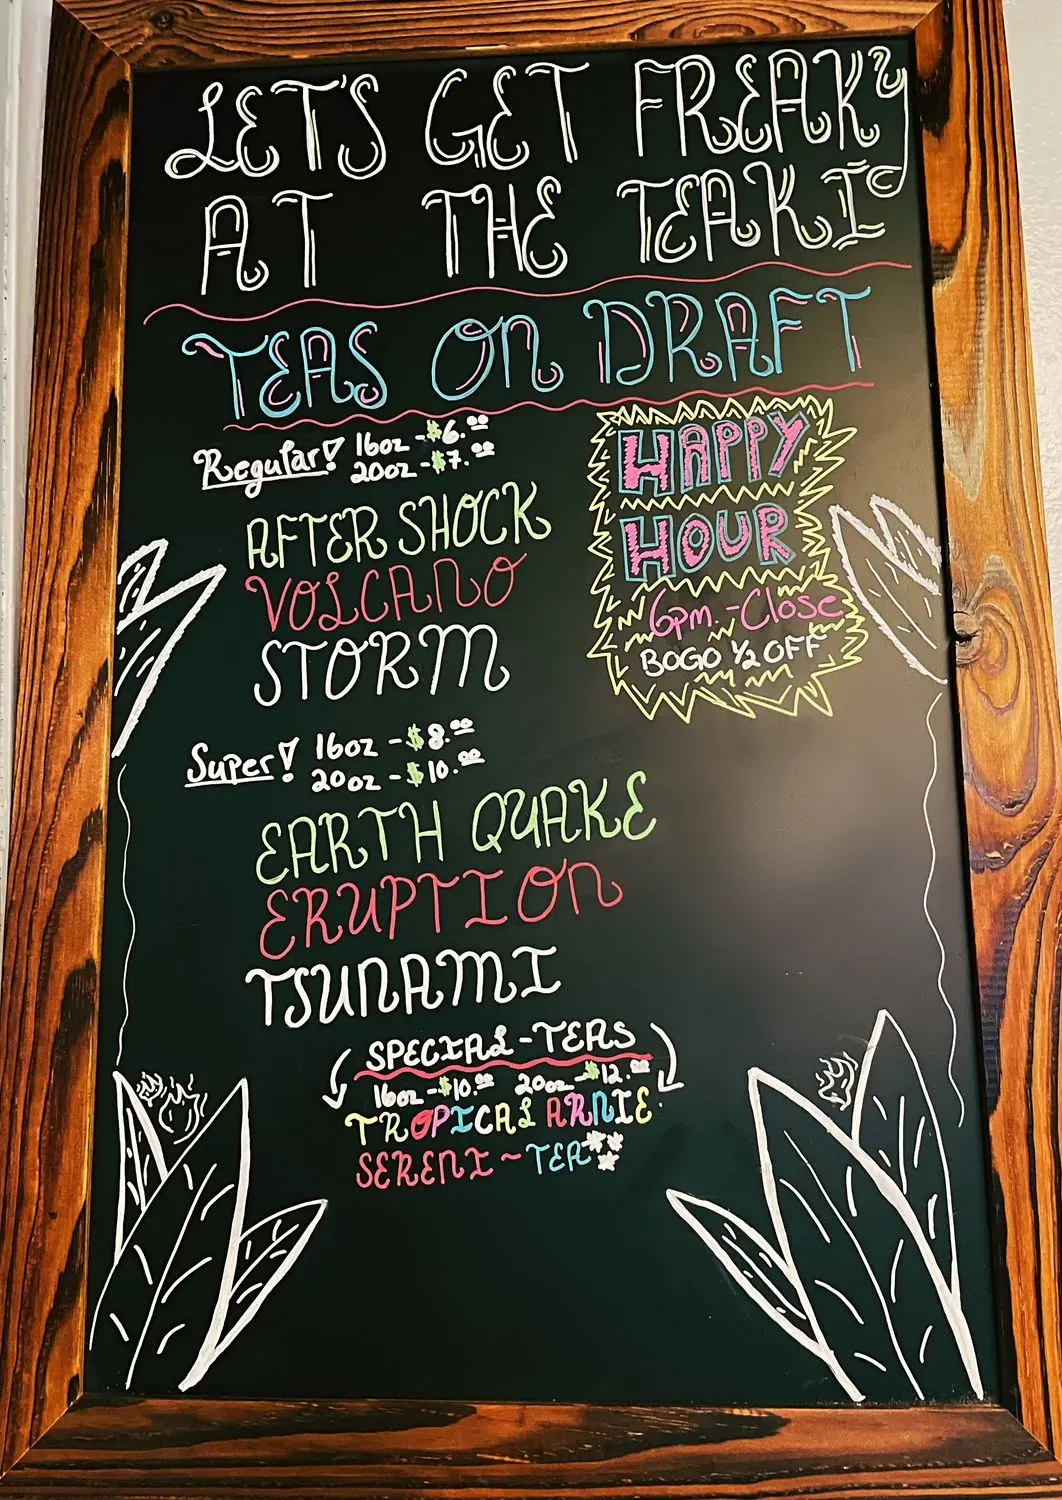 LET'S GET FREAKY
AT THE TEAKI
TEAS ON DRAFT
Regular! 16oz - $6.00
20oz - $7.00
AFTER SHOCK
VOLCANO
STORM
HAPPY
HOUR
6pm. - Close
BOGO 1/2 OFF
Super! 16oz - $8.00
20oz - $10.00
EARTH QUAKE
ERUPTION
TSUNAMI
SPECIAL - TEAS
16oz - $10.00 20oz - $12.00
TROPICAL ARNIE
SERENI ~ TEA